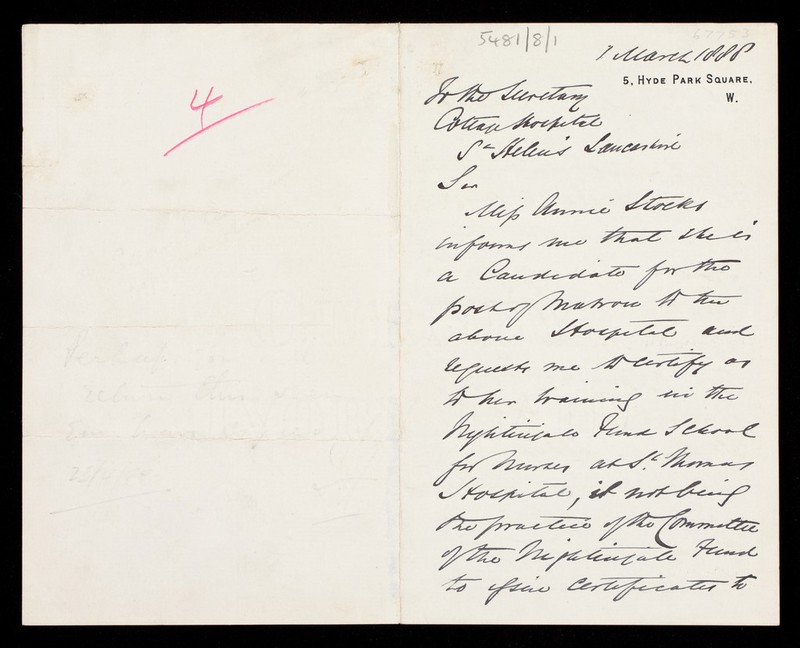 4
5481/8/1
67753
7 March 1888
5, HYDE PARK SQUARE,
W.
To the Secretary
Cottage Hospital
St Helen's Lancashire
Sir
Miss Annie Stocks
informs me that she is
a Candidate for the
post of Matron to the
above Hospital and
requests me to certify as
to her training in the
Nightingale Fund School
for Nurses at St. Thomas
Hospital, it not being
the practice of the Committee
of the Nightingale Fund
to give Certificates to